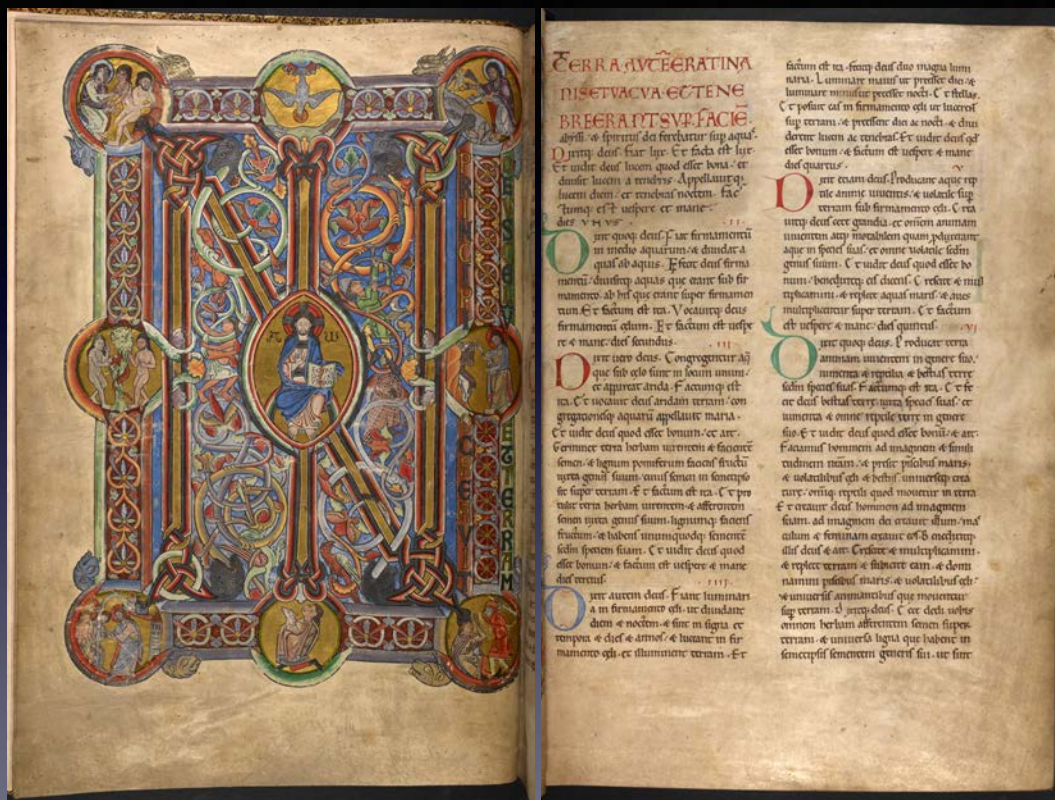 IN
PRINCIPIO CREAVIT
ET TERRAM
A ω
TERRA AVTE ERAT INA
NIS ET VACVA ET TENE
BRE ERANT SVP FACIE
abyssi. & spiritus dei ferebatur sup aquas.
Dixitq; deus. Fiat lux. Et facta est lux.
Et uidit deus lucem quod esset bona. et
diuisit lucem a tenebris. Appellauitq;
lucem diem. et tenebras noctem. fac
tumq; est uespere et mane.
dies vnvs. .ii.
Dixit quoq; deus. Fiat firmamentū
in medio aquarum. & diuidat a
quas ab aquis. Et fecit deus firma
mentū. diuisitq; aquas que erant sub fir
mamento. ab his que erant super firmamen
tum. Et factum est ita. Vocauitq; deus
firmamentū celum. Et factum est uespe
re & mane. dies secundus. .iii.
Dixit uero deus. Congregentur aq̄
que sub celo sunt in locum unum.
et appareat arida. Factumq; est
ita. Et uocauit deus aridam terram. con
gregationesq; aquarū appellauit maria.
Et uidit deus quod esset bonum. et ait.
Germinet terra herbam uirentem & facientē
semen. & lignum pomiferum faciens fructū
iuxta genus suum. cuius semen in semetipso
sit super terram. Et factum est ita. Et pro
tulit terra herbam uirentem. & afferentem
semen iuxta genus suum. lignumq; faciens
fructum. & habens unumquodq; sementem
scdm speciem suam. Et uidit deus quod
esset bonum. & factum est uespere & mane
dies tercius. .iiii.
Dixit autem deus. Fiant luminari
a in firmamento celi. ut diuidant
diem & noctem. & sint in signa et
tempora & dies & annos. & luceant in fir
mamento celi. et illuminent terram. Et
factum est ita. fecitq; deus duo magna lumi
naria. Luminare maius ut preesset diei. &
luminare minus ut preesset nocti. Et stellas.
Et posuit eas in firmamento celi ut lucerent
sup terram. & preessent diei ac nocti. & diui
derent lucem ac tenebras. Et uidit deus qd
esset bonum. & factum est uespere & mane
dies quartus. .v.
Dixit etiam deus. Producant aque rep
tile anime uiuentis. & volatile sup
terram sub firmamento celi. Crea
uitq; deus cete grandia. et omnem animam
uiuentem atq; motabilem quam produxerant
aque in species suas. et omne volatile scdm
genus suum. Et uidit deus quod esset bo
num. benedixitq; eis dicens. Crescite & mul
tiplicamini. & replete aquas maris. & aues
multiplicentur super terram. Et factum
est uespere & mane. dies quintus. .vi.
Dixit quoq; deus. Producat terra
animam uiuentem in genere suo.
iumenta & reptilia & bestias terre
scdm species suas. Factumq; est ita. Et fe
cit deus bestias terre iuxta species suas. et
iumenta & omne reptile terre in genere
suo. Et uidit deus quod esset bonū. & ait.
Faciamus hominem ad imaginem & simili
tudinem nr̄am. & presit piscibus maris.
& uolatilibus celi & bestiis. uniuerseq; crea
ture. omniq; reptili quod mouetur in terra
Et creauit deus hominem ad imaginem
suam. ad imaginem dei creauit illum. mas
culum & feminam creauit eos. Benedixitq;
illis deus & ait. Crescite & multiplicamini.
& replete terram & subicite eam. & domi
namini piscibus maris. & uolatilibus celi.
& uniuersis animantibus que mouentur
sup terram. Dixitq; deus. Ecce dedi uobis
omnem herbam afferentem semen super
terram. & uniuersa ligna que habent in
semetipsis sementem generis sui. ut sint